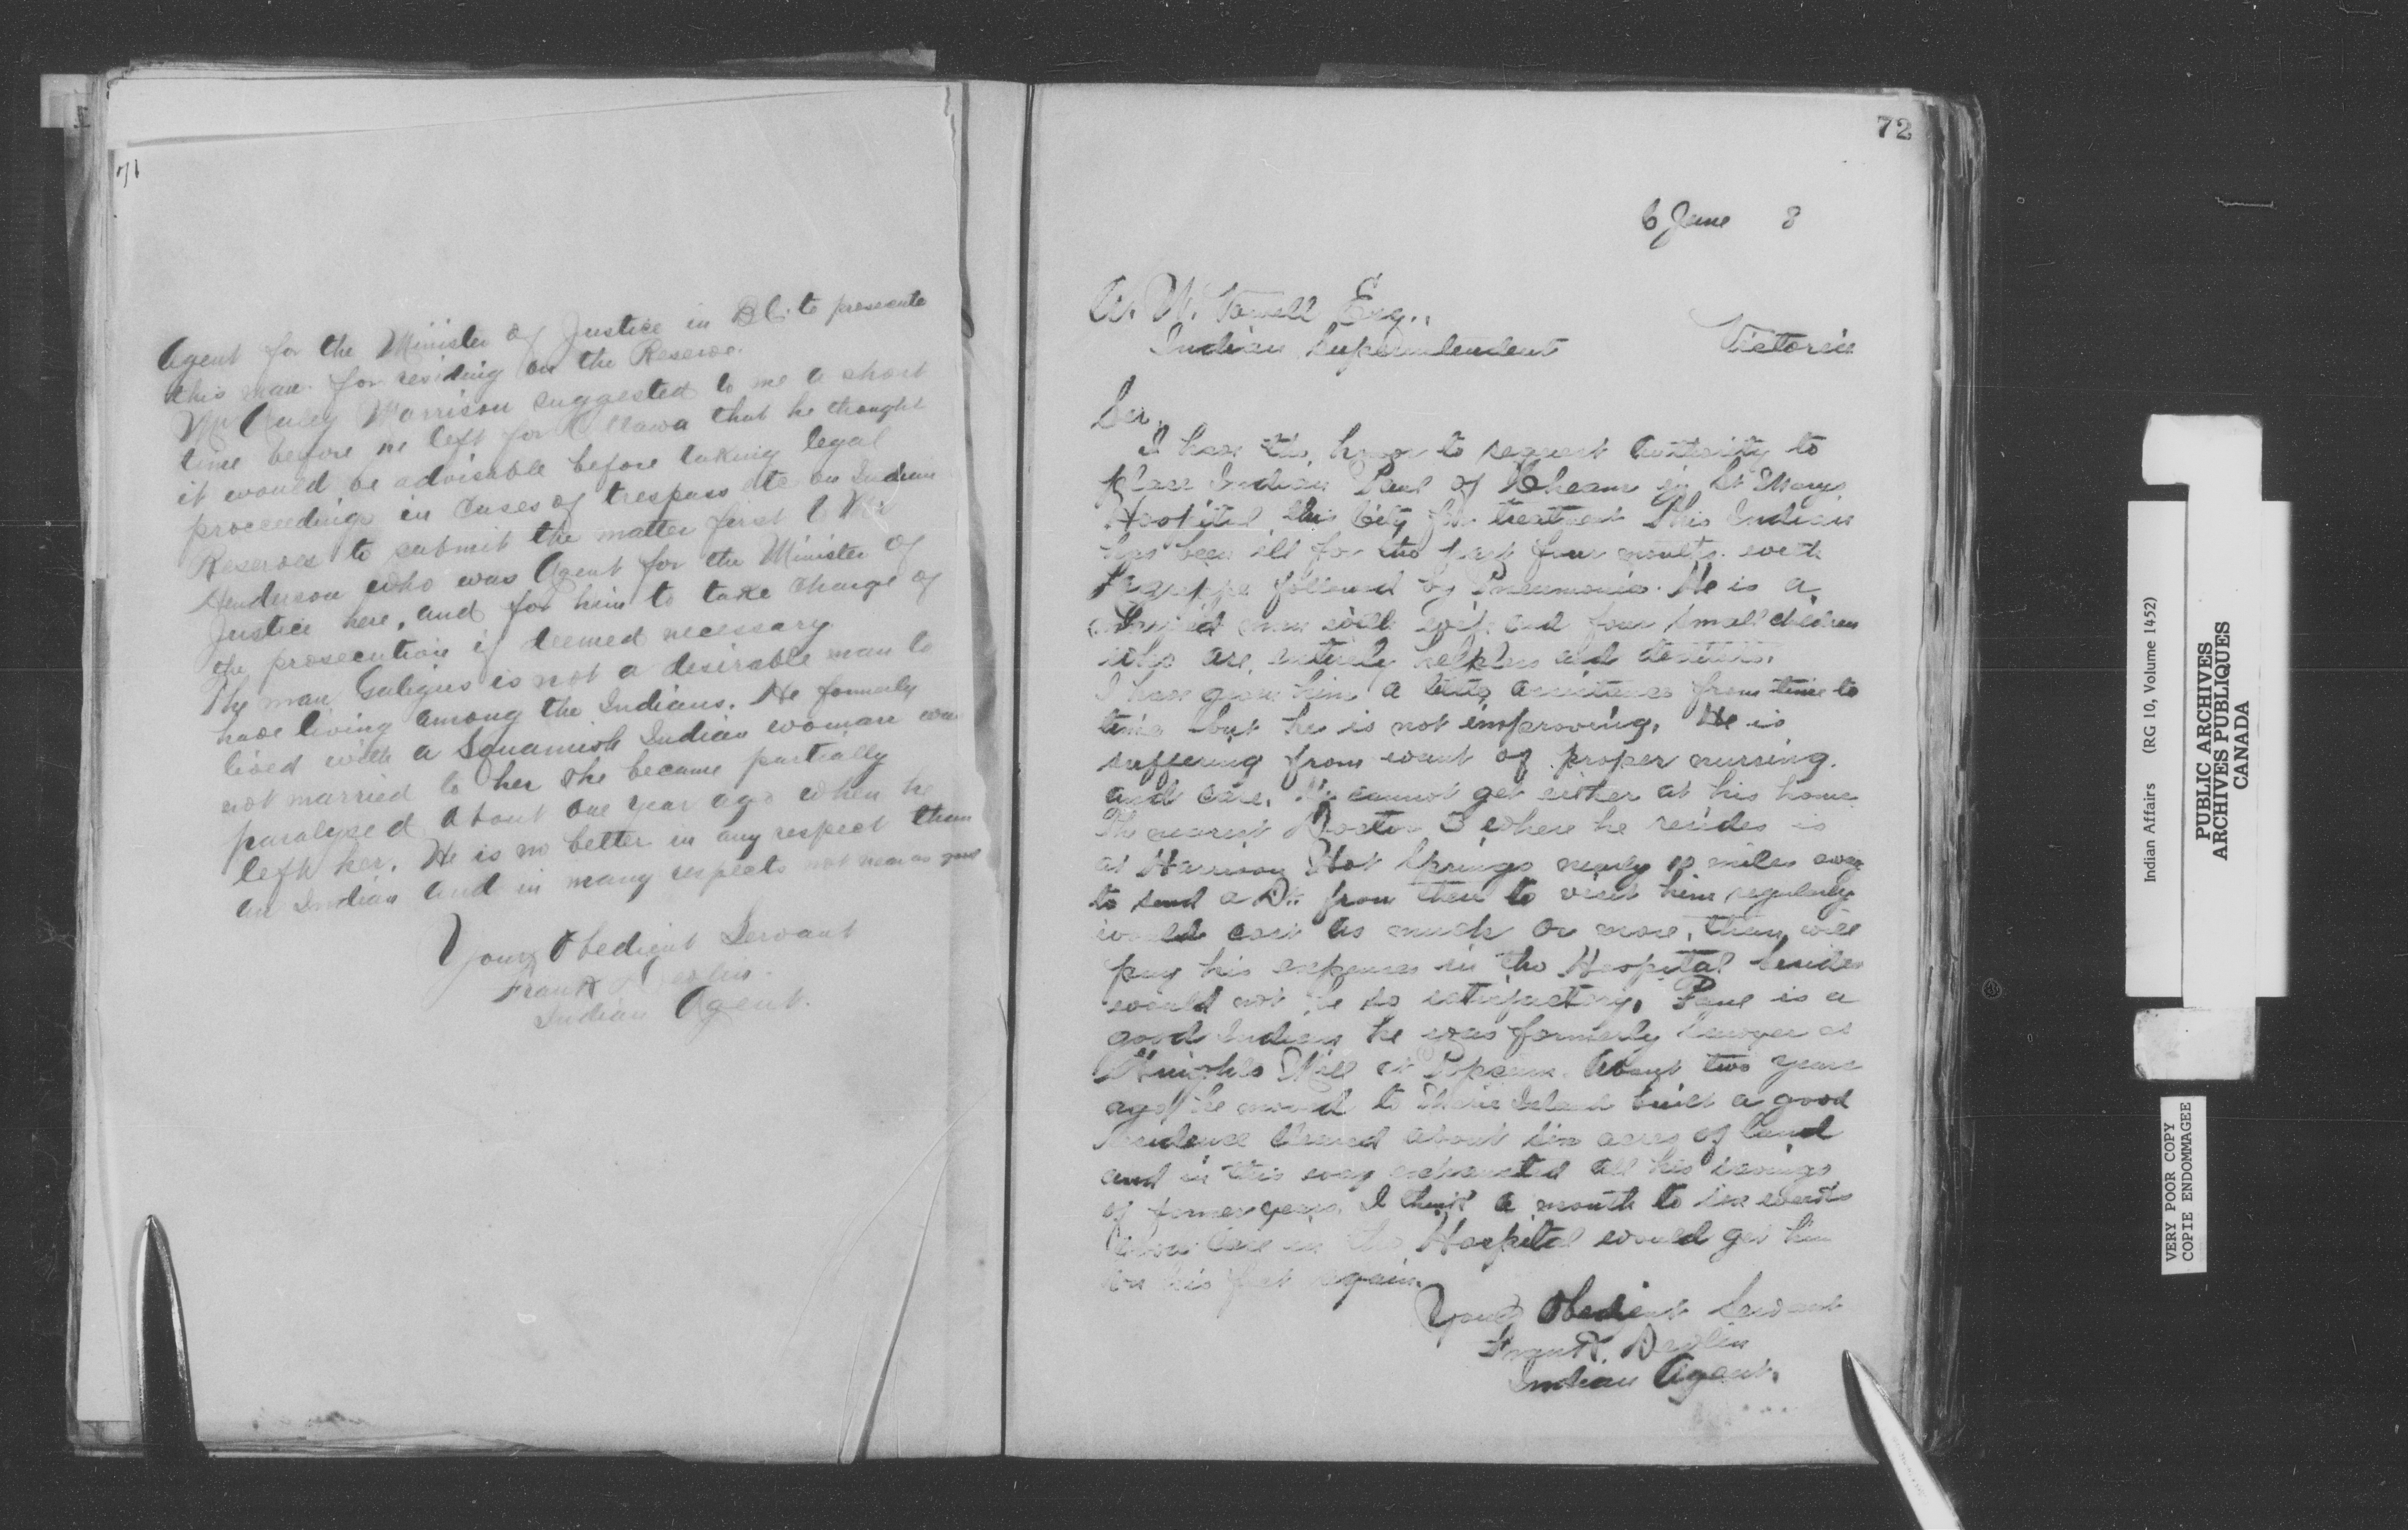 71
Agent for the Minister of Justice in B.C. to prosecute
this man for residing on the Reserve.
Mr Morrison suggested to me a short
time before he left for Ottawa that he thought
it would be advisable before taking legal
proceedings in cases of trespass etc on Indian
Reserves to submit the matter first to Mr
Henderson who was Agent for the Minister of
Justice here, and for him to take charge of
the prosecution if deemed necessary
The man is not a desirable man to
have living among the Indians. He formerly
lived with a Squamish Indian woman was
not married to her she became partially
paralyzed about one year ago when he
left her. He is no better in any respect than
an Indian and in many respects not near as good
Your Obedient Servant
Frank Devlin
Indian Agent.
72
6 June 8
A. W. Vowell Esq.,
Indian Superintendent Victoria
Sir,
I have the honor to request authority to
place Indian Paul of Cheam in St Marys
Hospital this City for treatment This Indian
has been ill for the past four months with
Lagrippe followed by Pneumonia. He is a
married man with wife and four small children
who are entirely helpless and destitute.
I have given him a little assistance from time to
time but he is not improving. He is
suffering from want of proper nursing
and care. He cannot get either at his home
The nearest Doctor to where he resides is
at Harrison Hot Springs nearly 10 miles away
to send a Dr. from there to visit him regularly
would cost as much or more, than will
pay his expenses in the Hospital besides
would not be so satisfactory. Paul is a
good Indian he was formerly sawyer at
Knights Mill at Popcum. About two years
ago he moved to Island built a good
residence cleared about six acres of land
and in this way exhausted all his savings
of former years. I think a month to six weeks
care in the Hospital would get him
on his feet again.
Your Obedient Servant
Frank Devlin
Indian Agent.
Indian Affairs (RG 10, Volume 1452)
PUBLIC ARCHIVES
ARCHIVES PUBLIQUES
CANADA
VERY POOR COPY
COPIE ENDOMMAGEE